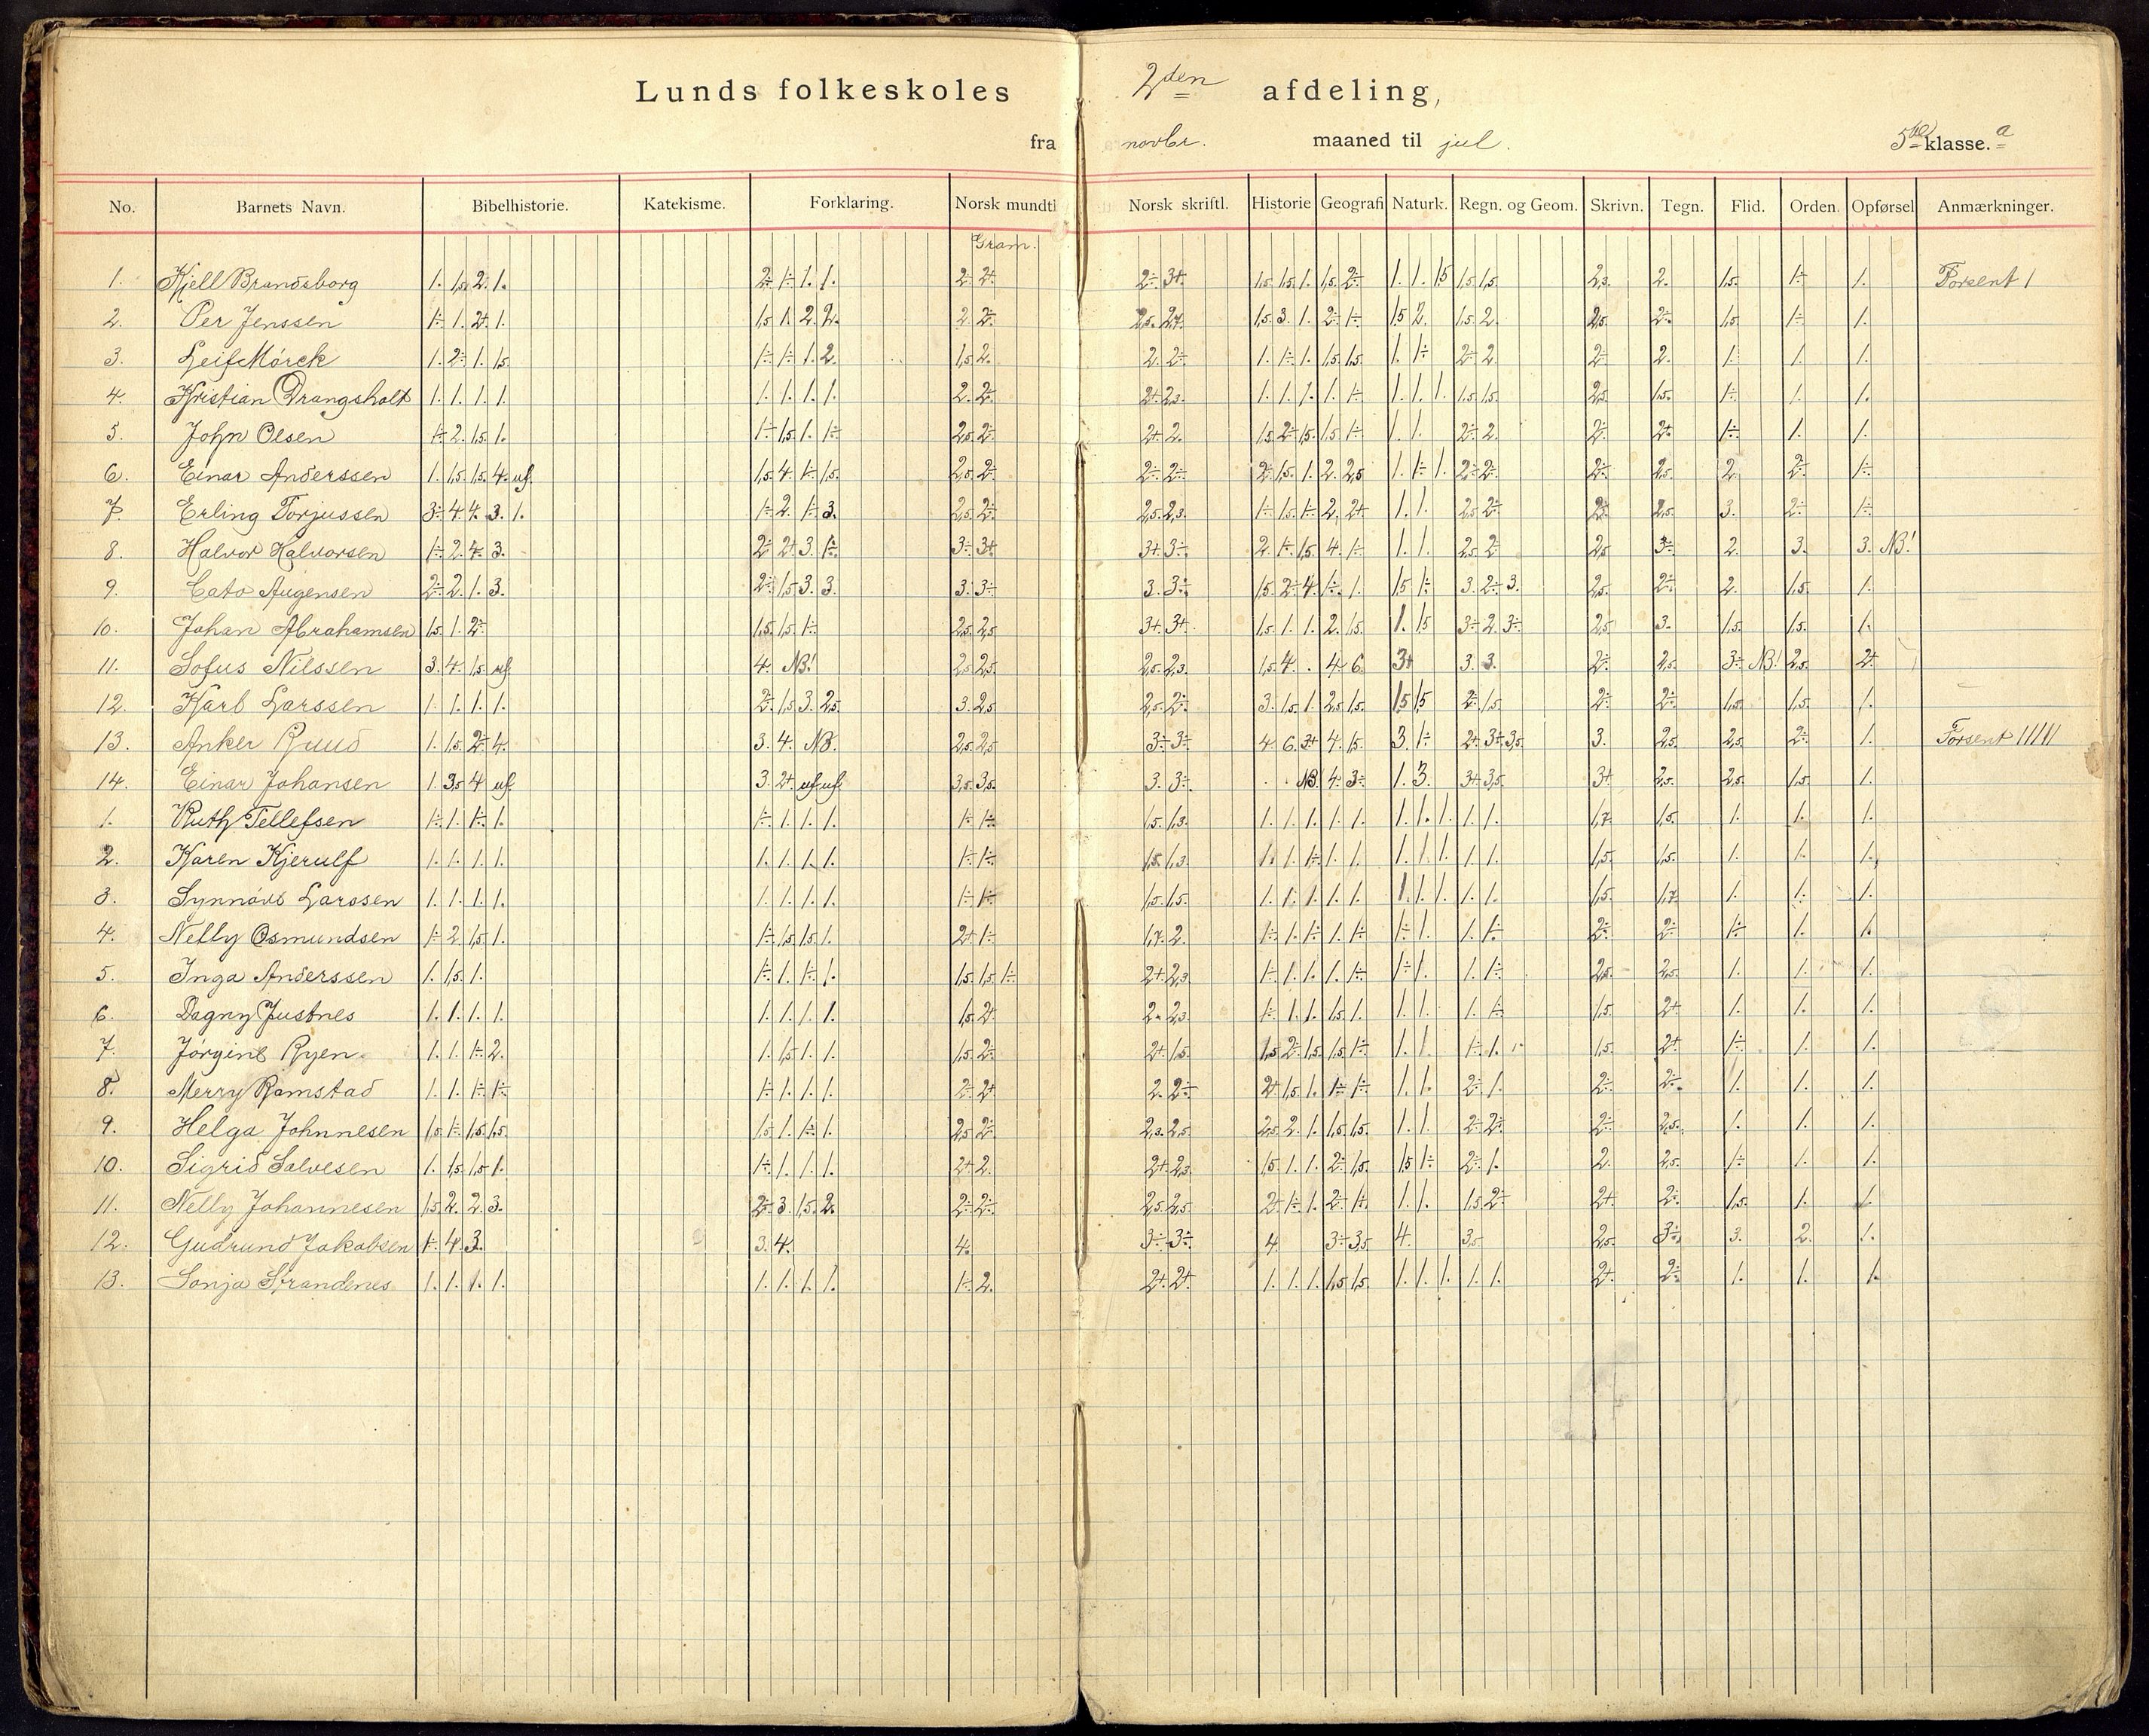 Lunds folkeskoles 2den afdeling,
fra novbr. maaned til jul. 5te klasse. a
No. Barnets Navn. Bibelhistorie. Katekisme. Forklaring. Norsk mundtl Norsk skriftl. Historie Geografi Naturk. Regn. og Geom. Skrivn. Tegn. Flid. Orden. Opførsel Anmærkninger.
Gram.
1. Kjell Brandsborg 1. 1,5. 2. 1. 2÷ 1÷ 1. 1. 2÷ 2+ 2÷ 3+ 1,5. 1,5. 1. 1,5. 2÷ 1. 1. 1,5 1,5. 1,5. 2,3. 2. 1,5. 1÷ 1. Forsent /
2. Per Jenssen 1÷ 1. 2+ 1. 1,5 1. 2. 2. 2. 2÷ 2,5. 2,7. 1,5. 3. 1. 2÷ 1÷ 1,5 2. 1,5. 2. 2,5. 2÷ 1,5. 1÷ 1.
3. Leif Mörck 1. 2÷ 1. 1,5. 1÷ 1÷ 1. 2. 1,5. 2. 2. 2÷ 1. 1÷ 1. 1,5. 1,5. 1. 1÷ 2÷ 2. 2÷ 2. 1. 1. 1.
4. Kristian Drangsholt 1. 1. 1. 1. 1. 1. 1. 1. 2. 2÷ 2+ 2,3. 1. 1. 1. 1. 1÷ 1. 1. 1. 1,5. 1,5. 2,5. 1,5. 1÷ 1. 1.
5. John Olsen 1÷ 2. 1,5. 1. 1÷ 1,5. 1. 1÷ 2,5. 2÷ 2+ 2. 1,5 2÷ 1,5. 1,5. 1÷ 1. 1. 2÷ 2. 2÷ 2+ 1÷ 1. 1.
6. Einar Anderssen 1. 1,5. 1,5. 4. uf. 1,5. 4. 1÷ 1,5. 2,5. 2÷ 2÷ 2÷ 2÷ 1,5. 1. 2. 2,5 1. 1÷ 1. 2÷ 2÷ 2÷ 2,5. 2. 2÷ 1÷
7. Erling Torjussen 3÷ 4. 4. 3. 1. 1÷ 2. 1÷ 3. 2,5. 2÷ 2,5. 2,3. 1÷ 1,5. 1÷ 2. 2+ 1. 1. 2,5. 2÷ 2÷ 2,5. 3. 2÷ 1÷
8. Halvor Halvorsen 1÷ 2. 4. 3. 2÷ 2+ 3. 1÷ 3÷ 3+ 3+ 3÷ 2. 1÷ 1,5. 4. 1÷ 1. 1. 2,5. 2÷ 2,5 3÷ 2. 3. 3. NB!
9. Cato Augensen 2÷ 2. 1. 3. 2÷ 1,5. 3. 3. 3. 3÷ 3. 3÷ 1,5. 2÷ 4. 1÷ 1. 1,5 1÷ 3. 2÷ 3. 2,5. 2÷ 2. 1,5. 1.
10. Johan Abrahamsen 1,5. 1. 2÷ 1,5. 1,5. 1÷ 2,5. 2,5 3+ 3+ 1,5. 1. 1. 2. 1,5. 1. 1,5 3÷ 2. 3÷ 2,5 3. 1,5. 1,5. 1.
11. Sofus Nilssen 3. 4. 1,5. uf. 4. NB! 2,5. 2,5 2,5. 2,3. 1,5. 4. . 4. 6. 3+ 3. 3. 2÷ 2,5. 3÷ NB! 2,5. 2+
12. Karl Larssen 1. 1. 1. 1. 2÷ 1,5. 3. 2,5. 3. 2,5 2,5. 2÷ 3. 1,5. 1. 2,5. 1,5. 1,5 1,5 2÷ 1,5. 2÷ 2÷ 1,5. 1,5. 1.
13. Anker Ruud 1. 1,5. 2÷ 4. 3. 4. NB. 2,5. 2,5 3÷ 3÷ 4. 6. 3+ 4. 1,5. 3. 1÷ 2+ 3+ 3,5. 3. 2,5. 2,5. 2÷ 1. Forsent /////
14. Einar Johansen 1. 3,5 4. uf. 3. 2+ uf. uf. 3,5. 3,5. 3. 3÷ . . NB! 4. 3÷ 1. 3. 3+ 3,5. 3+ 2,5. 2,5. 1,5. 1.
1. Ruth Tellefsen 1÷ 1. 1÷ 1. 1÷ 1. 1. 1. 1÷ 1÷ 1,5. 1,3. 1. 1. 1. 1. 1. 1. 1. 1. 1. 1. 1,7. 1,5. 1. 1. 1.
2. Karen Kjerulf 1. 1. 1. 1. 1. 1. 1. 1. 1÷ 1÷ 1,5. 1,3 1. 1. 1÷ 1. 1. 1. 1. 1. 1. 1. 1,5. 1,5. 1. 1. 1.
3. Synnöve Larssen 1. 1. 1. 1. 1. 1. 1. 1. 1÷ 1÷ 1,5. 1,5. 1. 1. 1. 1. 1. 1. 1. 1. 1. 1. 1,5. 1,7. 1. 1. 1.
4. Nelly Osmundsen 1÷ 2. 1,5. 1. 1÷ 1,5. 1,5. 1. 2+ 1÷ 1,7. 2. 1÷ 1. 1÷ 1. 1÷ 1÷ 1. 1. 1÷ 2÷ 2÷ 1÷ 1. 1.
5. Inga Anderssen 1. 1,5. 1. 1÷ 1. 1÷ 1. 1,5. 1,5. 1÷ 2+ 2,3 1÷ 1. 1. 1. 1÷ 1÷ 1. 1. 1÷ 2,5. 2,5. 1. 1. 1.
6. Dagny Justnes 1. 1. 1. 1. 1. 1. 1. 1. 1,5. 2+ 2. 2,3 1÷ 1. 1. 1,5. 1. 1. 1. 1. 1÷ 1,5. 2+ 1. 1. 1.
7. Jörgine Ryen 1. 1. 1÷ 2. 1. 1,5. 1. 1. 1,5. 2÷ 2+ 1,5. 1,5 2÷ 1,5. 1,5. 1÷ 1. 1. 1÷ 1. 1,5. 2+ 1÷ 1. 1.
8. Merry Ramstad 1. 1. 1÷ 1÷ 1÷ 1. 1. 1. 2÷ 2+ 2. 2÷ 2+ 1,5. 1. 1÷ 1÷ 1. 1. 2÷ 1. 2÷ 2÷ 1. 1. 1.
9. Helga Johnnesen 1,5. 1÷ 1,5. 1,5. 1,5. 1. 1÷ 1. 2,5. 2÷ 2,3. 2,5. 2,5. 2. 1. 1,5. 1,5. 1. 1. 2÷ 2÷ 2÷ 2,5. 1. 1. 1.
10. Sigrid Salvesen 1. 1,5. 1,5. 1. 1÷ 1. 1. 1. 2+ 2. 2+ 2,3 1,5. 1. 1. 2÷ 1,5. 1,5 1÷ 2÷ 1. 2. 2,5. 1÷ 1. 1.
11. Nelly Johannesen 1,5. 2. 2. 3. 2÷ 3. 1,5. 2. 2÷ 2÷ 2,5. 2,5. 2+ 1÷ 1. 2÷ 1÷ 1. 1. 1,5. 2÷ 2+ 2÷ 1,5. 1. 1.
12. Gudrund Jakobsen 1÷ 4. 3. 3. 4. 4. 3÷ 3÷ 4. 3÷ 3,5 4. 3,5. 2,5. 3÷ 3. 2. 1.
13. Sonja Strandenes 1. 1. 1. 1. 1. 1. 1. 1. 1÷ 2. 2+ 2+ 1. 1. 1. 1,5. 1,5. 1. 1. 1. 1. 1. 2+ 2÷ 1. 1. 1.